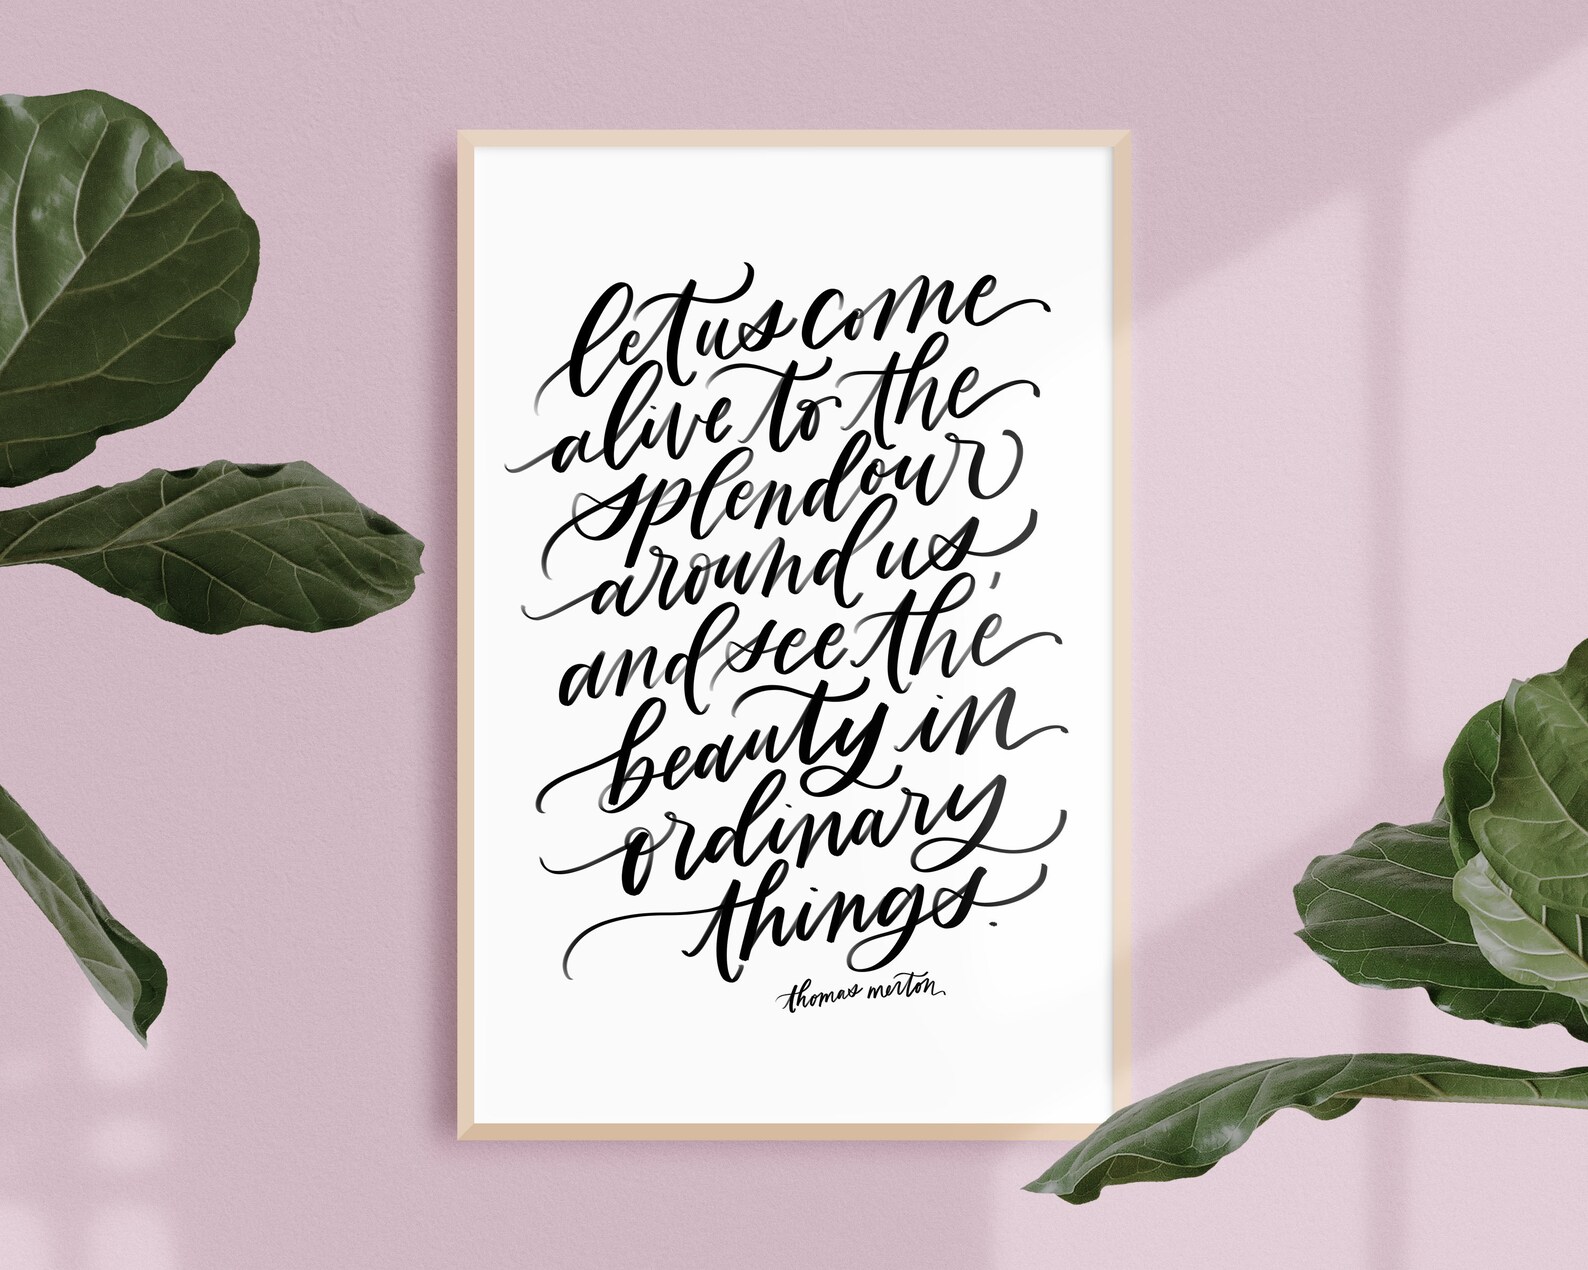 let us come
alive to the
splendour
around us,
and see the
beauty in
ordinary
things.
thomas merton